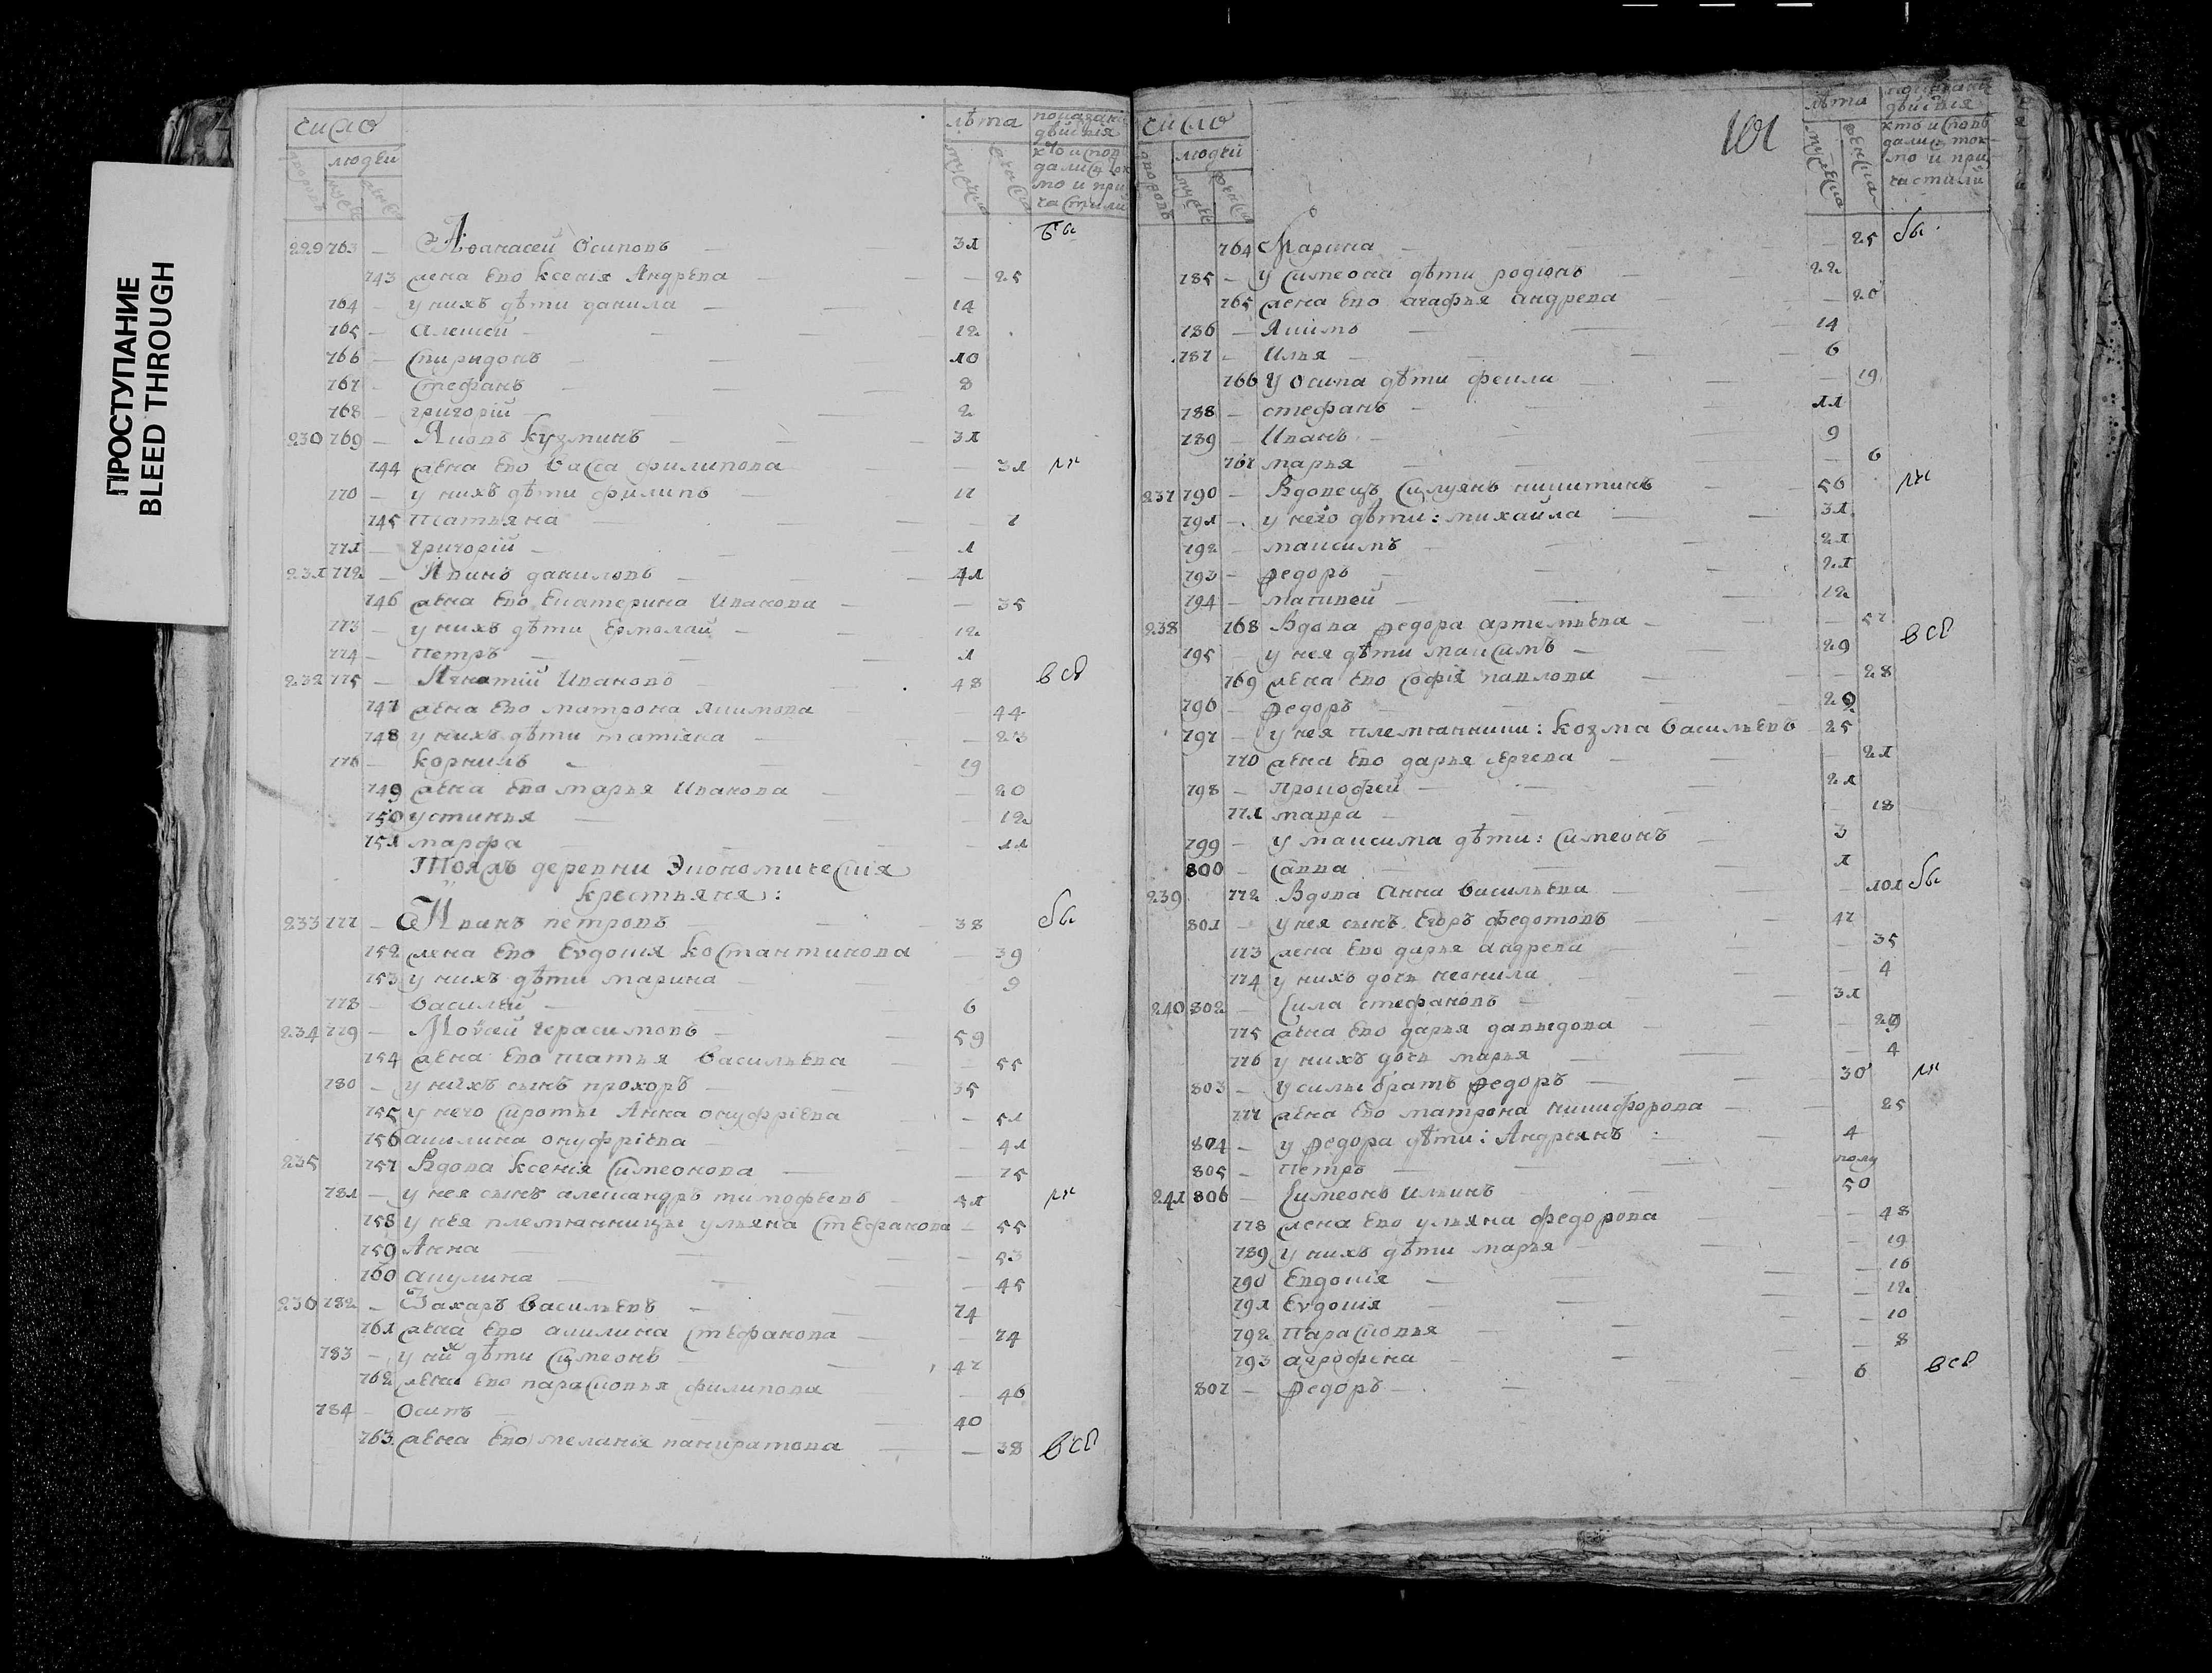 ПРОСТУПАНИЕ
BLEED THROUGH
число лѣта показани
людей двистия
дворовъ мужес женск мужеска женска хто испов
далися ток
мо и при
частили
229 763 — Афанасей Осиповъ — 31 бы
743 жена Ево Ксенія Андрѣева — 25
764 — у нихъ дѣти данила — 14
765 — Алексей — 12
766 — Спиридонъ — 10
767 — Стефанъ — 8
768 — григорій — 2
230 769 — Яковъ Кузминъ — 31
744 жена Ево Васса филипова — 31
770 — у нихъ дѣти филипъ — 17
745 Татьяна — 7
771 — григорій — 1
231 772 — Авинъ даниловъ — 41
746 жена Ево Екатерина Иванова — 35
773 — у нихъ дѣти Ермолай — 12
774 — Петръ — 1
232 775 — Игнатій Ивановъ — 48 всѣ
747 жена Ево матрона якимова — 44
748 у нихъ дѣти татіяна — 23
776 — корнилъ — 19
749 жена Ево марья Иванова — 20
750 устинья — 12
751 марфа — 11
Тояжъ деревни Экономическія
крестьяня:
233 777 — Иванъ петровъ — 38 бы
752 жена Ево Евдокія Костантинова — 39
753 у нихъ дѣти марина — 9
778 — Василей — 6
234 779 — Моѵсей герасимовъ — 59
754 жена Ево татья Васильева — 55
780 — у нихъ сынъ прохоръ — 35
755 у него сироты Анна онуфріева — 51
756 акилина онуфріева — 41
235 757 Вдова Ксенія Симеонова — 75
781 — у нея сынъ александръ тимофѣевъ — 51
758 у нѣя племянницы ульяна Стефанова — 55
759 Анна — 53
760 акулина — 45
236 782 — Захаръ Васильевъ — 74
761 жена Ево акилина Стефанова — 74
783 — у них дѣти Симеонъ — 47
762 жена Ево парасковья филипова — 46
784 — Осипъ — 40
763 жена Ево меланія панкратова — 38 всѣ
101
число лѣта
людей двистия
дворовъ мужес женск мужеска женска хто исповѣ
дались ток
мо и при
частили
764 Марина — 25 бы
785 — у Симеона дѣти родіонъ — 22
765 жена Ево агафья андрева — 20
786 — Якимъ — 14
787 — Илья — 6
766 У Осипа дѣти фекла — 19
788 — стефанъ — 11
789 — Иванъ — 9
767 марья — 6
237 790 — Вдовецъ Силуянъ никитинъ — 56
791 — у него дѣти: михайла — 31
792 — максимъ — 21
793 — ѳедоръ — 21
794 — матвей — 12
238 768 Вдова ѳедора артемьева — 57
795 — у нея дѣти максимъ — 29 всѣ
769 жена Ево софія павлова — 28
796 — ѳедоръ — 26
797 — у нея племянники: Козма Васильевъ 25
770 жена Ево дарья Сергева — 21
798 — прокофей — 21
771 мавра — 18
799 — у максима дѣти: Симеонъ — 3
800 — Савва — 1
239 772 Вдова Анна Васильева — 101 бы
801 — у нея сынъ Егоръ федотовъ — 47
773 жена Ево дарья андрева — 35
774 у нихъ дочь неонила — 4
240 802 — Сила стефановъ — 31
775 жена Ево дарья давыдова — 29
776 у нихъ дочь марья — 4
803 — у силы братъ ѳедоръ — 30
777 жена Ево матрона никифорова — 25
804 — у ѳедора дѣти: Андреянъ — 4
805 — Петръ — полу
241 806 — Симеонъ ильинъ — 50
778 жена Ево ульяна федорова — 48
789 у нихъ дѣти марья — 19
790 Евдокія — 16
791 Еѵдокія — 12
792 Парасковья — 10
793 агрофена — 8
807 — ѳедоръ — 6 всѣ